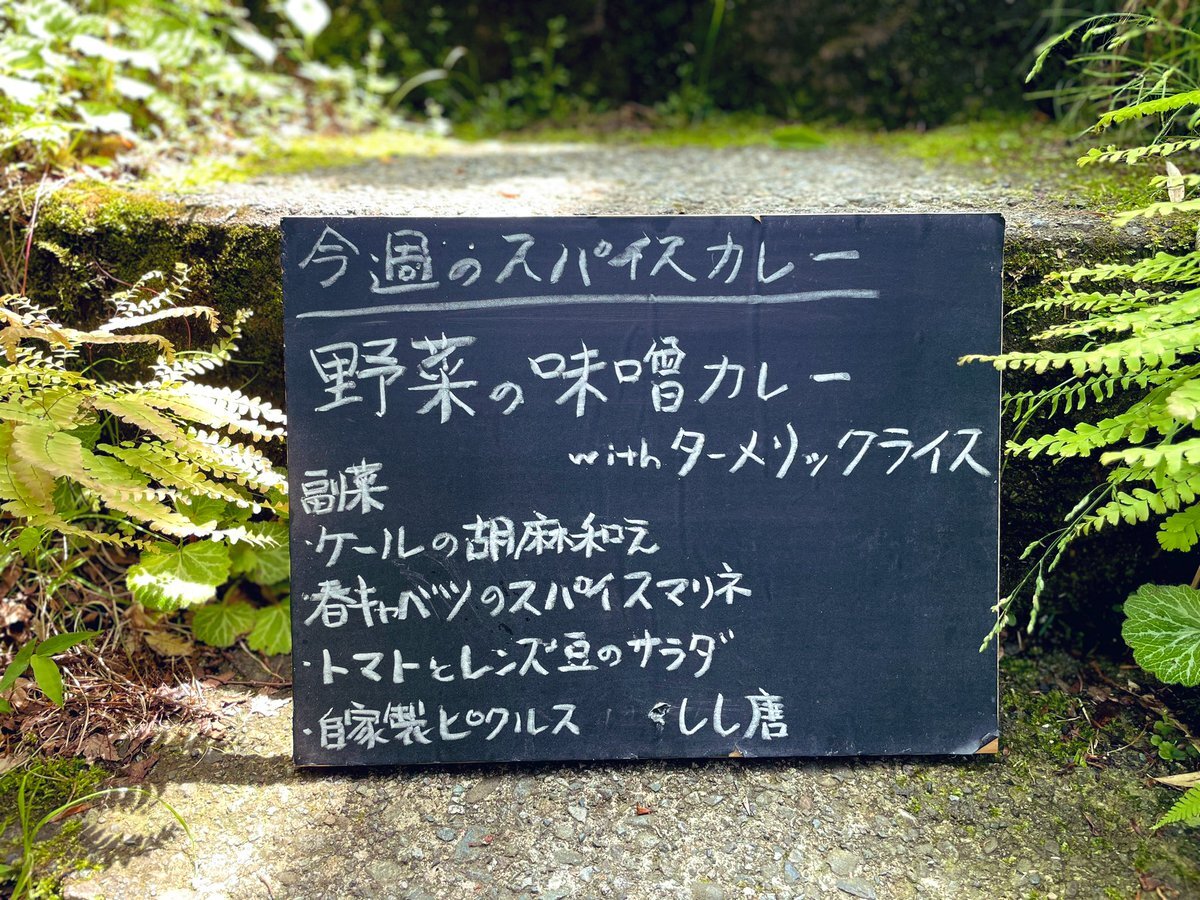 今週のスパイスカレー
野菜の味噌カレー
with ターメリックライス
副菜
・ケールの胡麻和え
・春キャベツのスパイスマリネ
・トマトとレンズ豆のサラダ
・自家製ピクルス ・しし唐